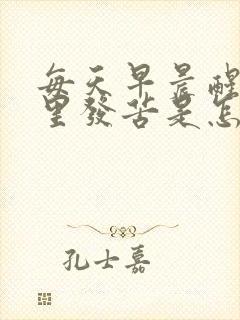 每天早晨醒
里發苦是怎
孔士嘉